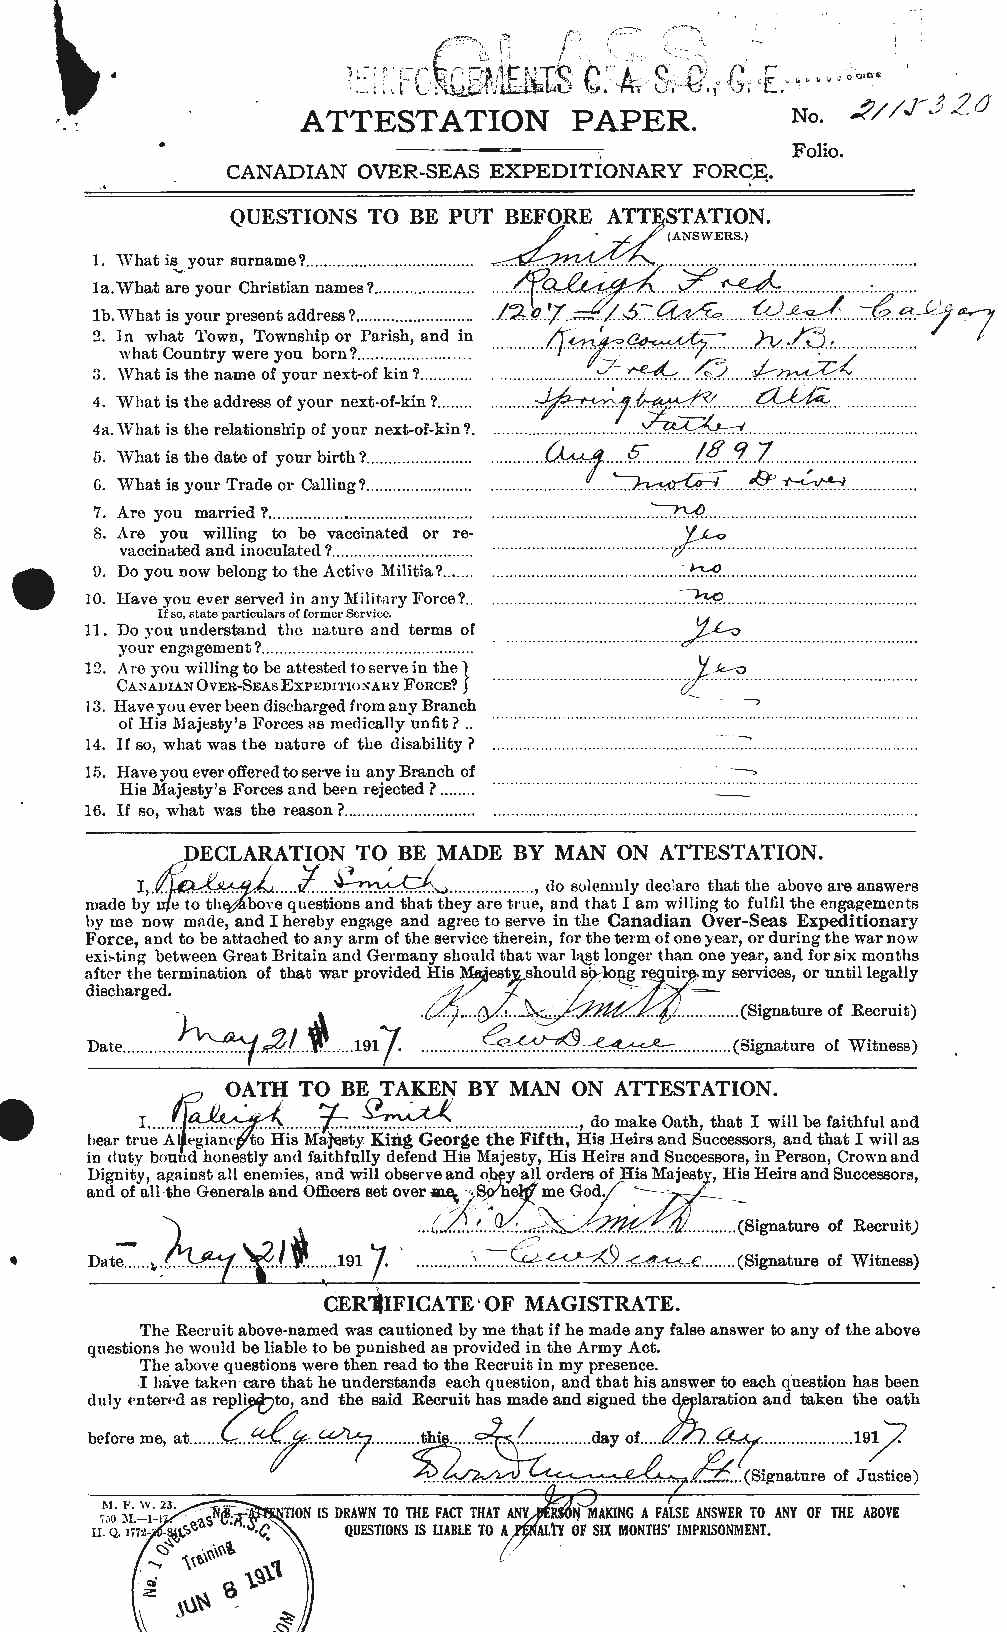 CLASS
REINFORCEMENTS C. A. S. C., C. E.
ATTESTATION PAPER.
No. 2115320
Folio.
CANADIAN OVER-SEAS EXPEDITIONARY FORCE.
QUESTIONS TO BE PUT BEFORE ATTESTATION.
(ANSWERS.)
1. What is your surname? Smith
1a. What are your Christian names? Raleigh Fred
1b. What is your present address? 1207 - 15 Ave West Calgary
2. In what Town, Township or Parish, and in
what Country were you born? Kingscounty N.B.
3. What is the name of your next-of kin? Fred B Smith
4. What is the address of your next-of-kin? Springbank Alta
4a. What is the relationship of your next-of-kin? Father
5. What is the date of your birth? Aug 5 1897
6. What is your Trade or Calling? Motor Driver
7. Are you married? no
8. Are you willing to be vaccinated or re-
vaccinated and inoculated? Yes
9. Do you now belong to the Active Militia? no
10. Have you ever served in any Military Force? no
If so, state particulars of former Service.
11. Do you understand the nature and terms of
your engagement? Yes
12. Are you willing to be attested to serve in the
CANADIAN OVER-SEAS EXPEDITIONARY FORCE? Yes
13. Have you ever been discharged from any Branch
of His Majesty's Forces as medically unfit?
14. If so, what was the nature of the disability?
15. Have you ever offered to serve in any Branch of
His Majesty's Forces and been rejected?
16. If so, what was the reason?
DECLARATION TO BE MADE BY MAN ON ATTESTATION.
I, Raleigh F Smith, do solemnly declare that the above are answers
made by me to the above questions and that they are true, and that I am willing to fulfil the engagements
by me now made, and I hereby engage and agree to serve in the Canadian Over-Seas Expeditionary
Force, and to be attached to any arm of the service therein, for the term of one year, or during the war now
existing between Great Britain and Germany should that war last longer than one year, and for six months
after the termination of that war provided His Majesty should so long require my services, or until legally
discharged.
R. F. Smith (Signature of Recruit)
Date May 21 1917. (Signature of Witness)
OATH TO BE TAKEN BY MAN ON ATTESTATION.
I Raleigh F Smith, do make Oath, that I will be faithful and
bear true Allegiance to His Majesty King George the Fifth, His Heirs and Successors, and that I will as
in duty bound honestly and faithfully defend His Majesty, His Heirs and Successors, in Person, Crown and
Dignity, against all enemies, and will observe and obey all orders of His Majesty, His Heirs and Successors,
and of all the Generals and Officers set over me. So help me God.
R. F. Smith (Signature of Recruit)
Date May 21 1917. (Signature of Witness)
CERTIFICATE OF MAGISTRATE.
The Recruit above-named was cautioned by me that if he made any false answer to any of the above
questions he would be liable to be punished as provided in the Army Act.
The above questions were then read to the Recruit in my presence.
I have taken care that he understands each question, and that his answer to each question has been
duly entered as replied to, and the said Recruit has made and signed the declaration and taken the oath
before me, at Calgary this 21 day of May 1917.
(Signature of Justice)
M. F. W. 23.
H. Q. 1772
N.B.—ATTENTION IS DRAWN TO THE FACT THAT ANY PERSON MAKING A FALSE ANSWER TO ANY OF THE ABOVE
QUESTIONS IS LIABLE TO A PENALTY OF SIX MONTHS' IMPRISONMENT.
No. 1 Overseas C.A.S.C.
Training
JUN 8 1917